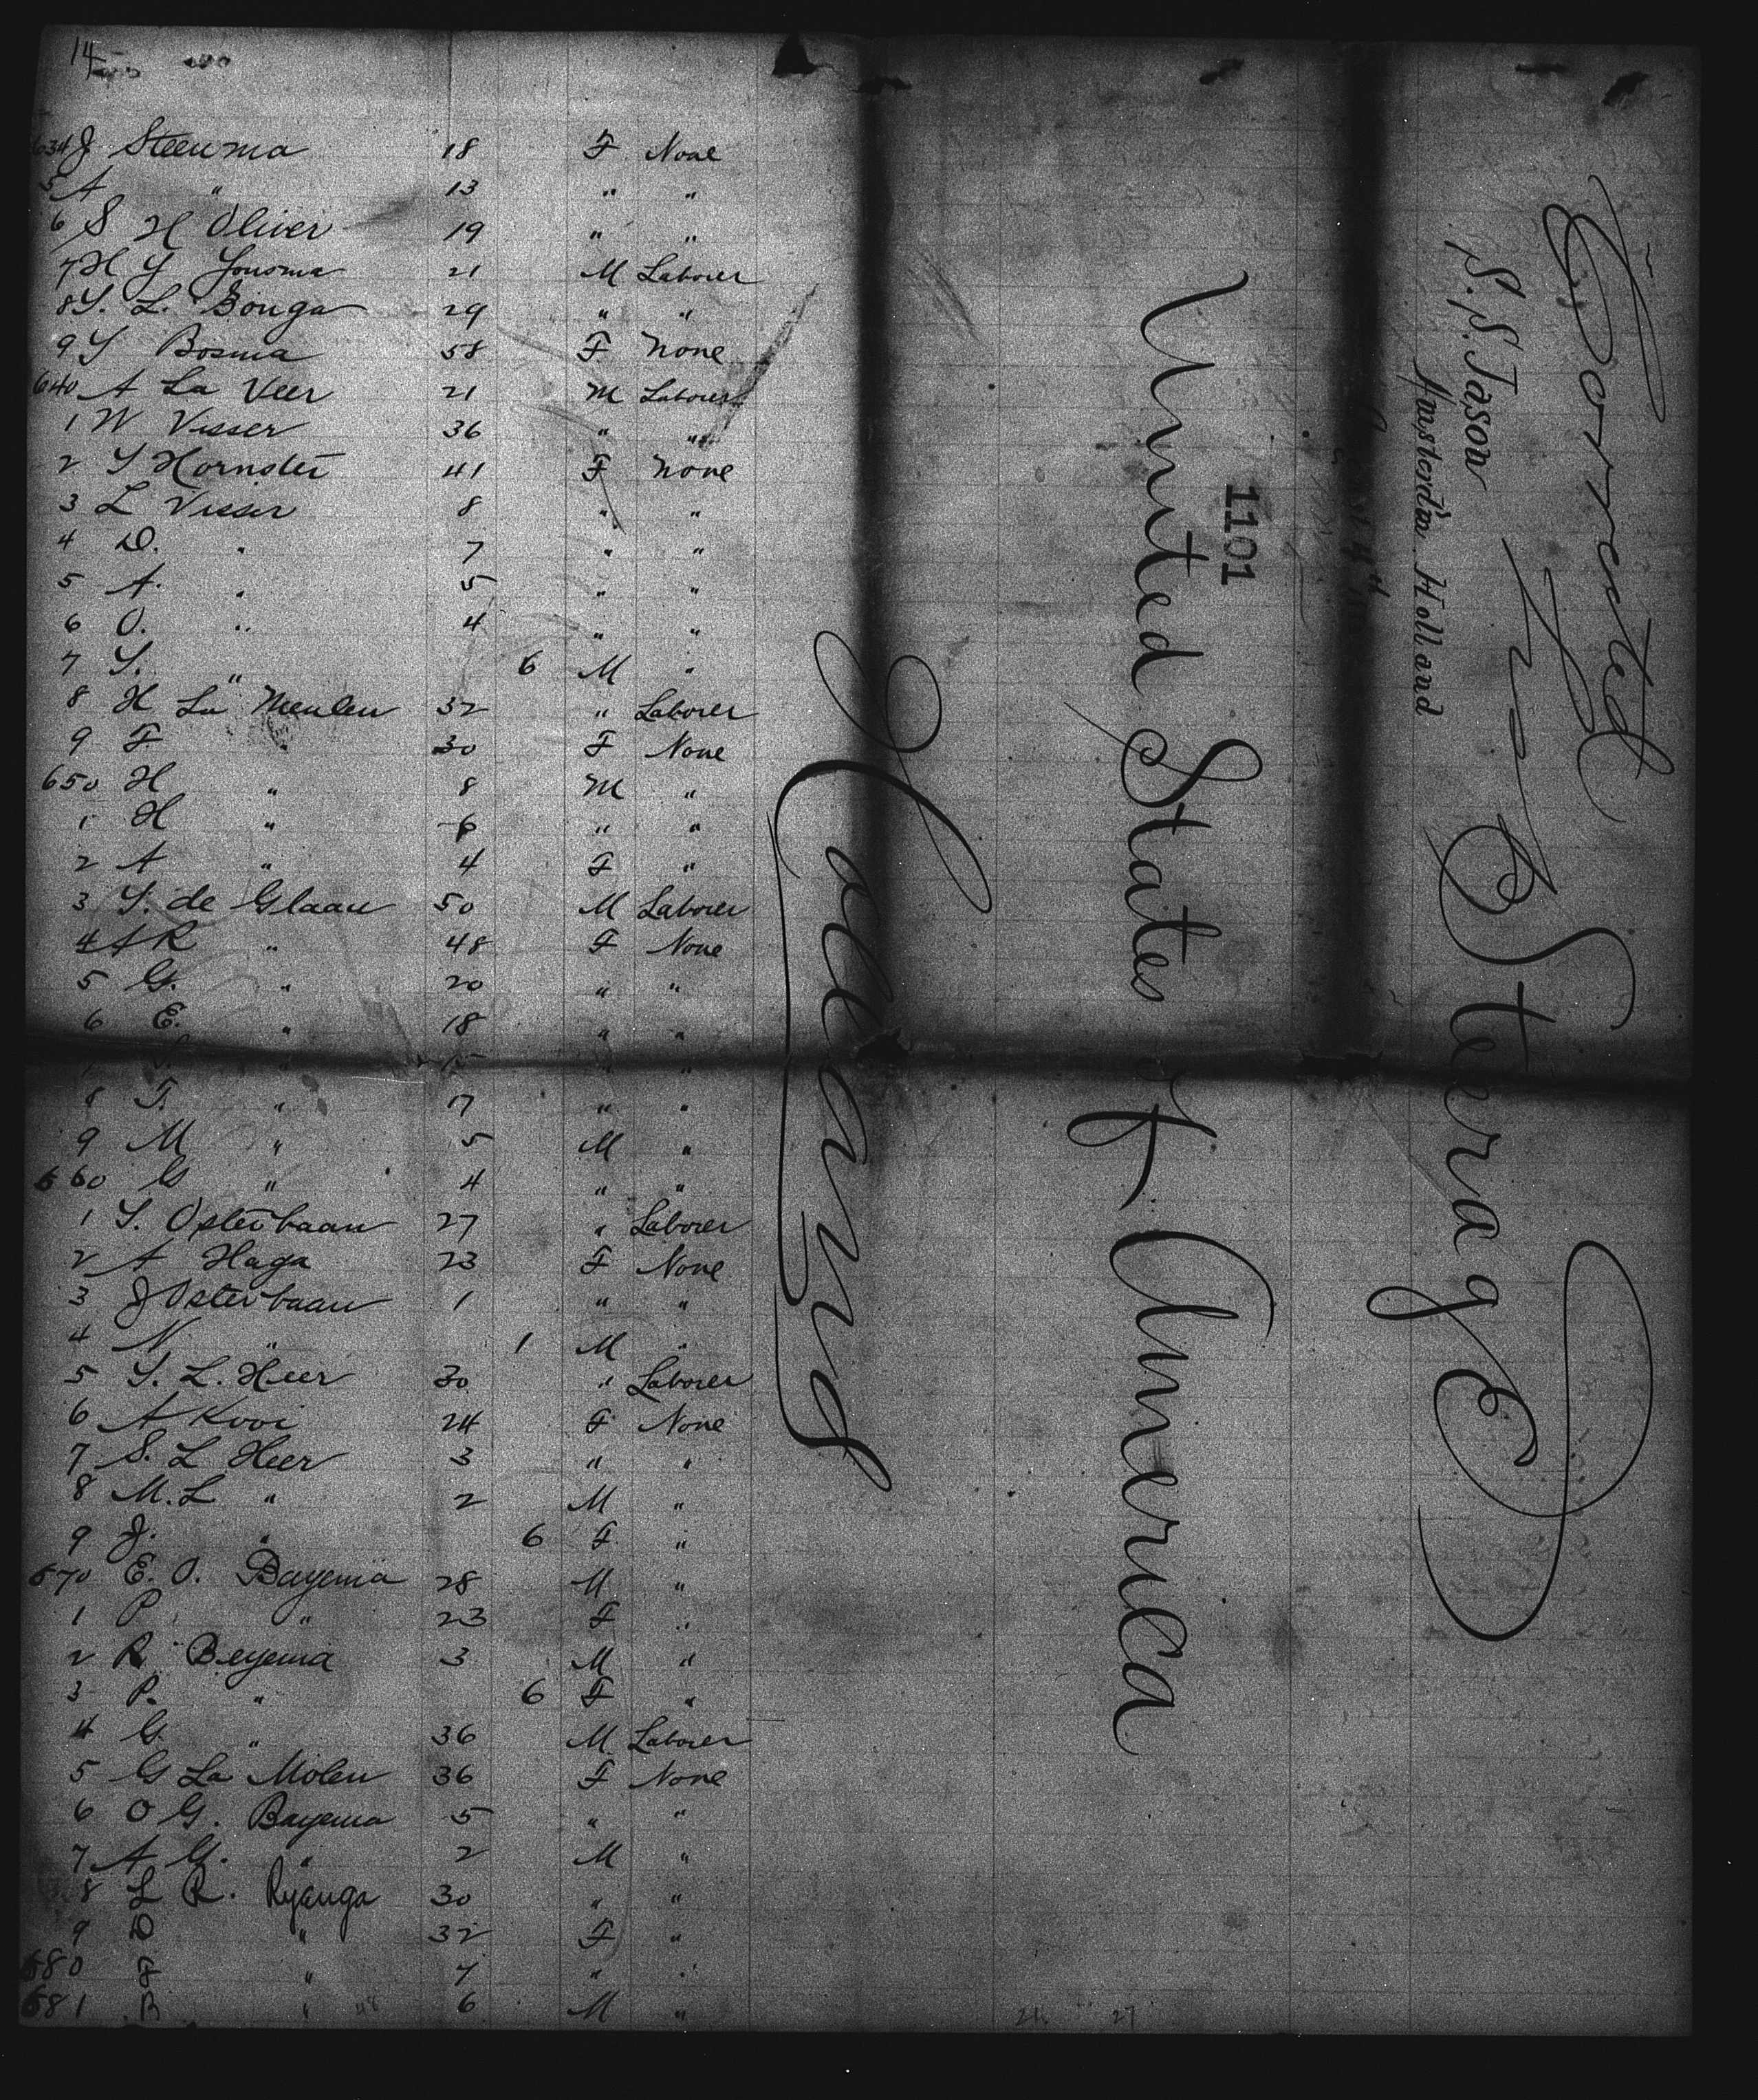 14
634 J Steenma 18 F None
5 A " 13 " "
6 S H Oliver 19 " "
7 H Y Jousma 21 M Laborer
8 Y. L. Bouga 29 " "
9 Y Bosma 58 F None
640 A La Veer 21 M Laborer
1 W Visser 36 " "
2 Y Hornster 41 F None
3 L Visser 8 " "
4 D. " 7 " "
5 A. " 5 " "
6 O. " 4 " "
7 Y. " 6 M "
8 H La Meulen 32 " Laborer
9 F " 30 F None
650 H " 8 M "
1 H " 6 " "
2 A " 4 F "
3 Y. de Glaan 50 M Laborer
4 A R " 48 F None
5 G. " 20 " "
6 E. " 18 " "
" " "
8 T. " 17 " "
9 M " 5 M "
660 G " 4 " "
1 Y. Osterbaan 27 " Laborer
2 A Haga 23 F None
3 J Osterbaan 1 " "
4 N " 1 M "
5 Y. L. Heer 30 " Laborer
6 A Kooi 24 F None
7 S. L Heer 3 " "
8 M. L " 2 M "
9 J. " 6 F "
670 E. O. Bayema 28 M "
1 P " 23 F "
2 R Beyema 3 M "
3 P. " 6 F "
4 G. " 36 M Laborer
5 G La Molen 36 F None
6 O G. Bayema 5 " "
7 A G. " 2 M "
8 L R. Ryenga 30 " "
9 D " 32 F "
680 F " 7 " "
681 B " 6 M "
United States of America
1101
S.S. Jason
Amsterdam Holland
Steerage
21 27